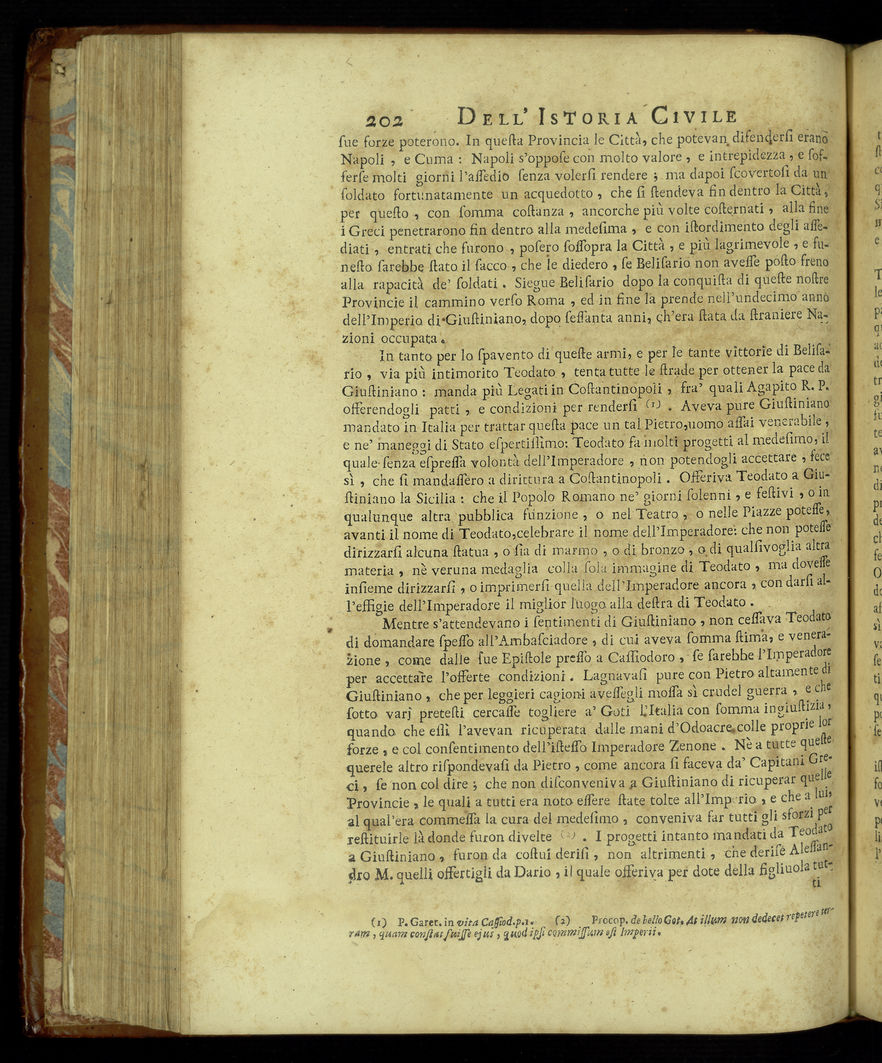 202 DELL' ISTORIA CIVILE
ſue forze poterono. In queſta Provincia le Città, che potevan difenderſi erano
Napoli , e Cuma : Napoli s'oppoſe con molto valore , e intrepidezza , e ſof-
ferſe molti giorni l'aſſedio ſenza volerſi rendere ; ma dapoi ſcovertoſi da un
ſoldato fortunatamente un acquedotto , che ſi ſtendeva fin dentro la Città,
per queſto , con ſomma coſtanza , ancorche più volte coſternati , alla fine
i Greci penetrarono fin dentro alla medeſima , e con iſtordimento degli aſſe-
diati , entrati che furono , poſero ſoſſopra la Città , e più lagrimevole , e fu-
neſto ſarebbe ſtato il ſacco , che le diedero , ſe Beliſario non aveſſe poſto freno
alla rapacità de' ſoldati . Siegue Beliſario dopo la conquiſta di queſte noſtre
Provincie il cammino verſo Roma , ed in fine la prende nell'undecimo anno
dell'Imperio di Giuſtiniano, dopo ſeſſanta anni, ch'era ſtata da ſtraniere Na-
zioni occupata.
In tanto per lo ſpavento di queſte armi, e per le tante vittorie di Beliſa-
rio , via più intimorito Teodato , tenta tutte le ſtrade per ottener la pace da
Giuſtiniano : manda più Legati in Coſtantinopoli , fra' quali Agapito R. P.
offerendogli patti , e condizioni per renderſi (1) . Aveva pure Giuſtiniano
mandato in Italia per trattar queſta pace un tal Pietro,uomo aſſai venerabile ,
e ne' maneggi di Stato eſpertiſſimo: Teodato fa molti progetti al medeſimo, il
quale ſenza eſpreſſa volontà dell'Imperadore , non potendogli accettare , fece
sì , che ſi mandaſſero a dirittura a Coſtantinopoli . Offeriva Teodato a Giu-
ſtiniano la Sicilia : che il Popolo Romano ne' giorni ſolenni , e feſtivi , o in
qualunque altra pubblica funzione , o nel Teatro , o nelle Piazze poteſſe,
avanti il nome di Teodato,celebrare il nome dell'Imperadore: che non poteſſe
dirizzarſi alcuna ſtatua , o ſia di marmo , o di bronzo , o di qualſivoglia altra
materia , nè veruna medaglia colla ſola immagine di Teodato , ma doveſſe
inſieme dirizzarſi , o imprimerſi quella dell'Imperadore ancora , con darſi al-
l'effigie dell'Imperadore il miglior luogo alla deſtra di Teodato .
Mentre s'attendevano i ſentimenti di Giuſtiniano , non ceſſava Teodato
di domandare ſpeſſo all'Ambaſciadore , di cui aveva ſomma ſtima, e venera-
zione , come dalle ſue Epiſtole preſſo a Caſſiodoro , ſe ſarebbe l'Imperadore
per accettare l'offerte condizioni . Lagnavaſi pure con Pietro altamente di
Giuſtiniano , che per leggieri cagioni aveſſegli moſſa sì crudel guerra , e che
ſotto varj preteſti cercaſſe togliere a' Goti l'Italia con ſomma ingiuſtizia,
quando che eſſi l'avevan ricuperata dalle mani d'Odoacre,colle proprie lor
forze , e col conſentimento dell'iſteſſo Imperadore Zenone . Nè a tutte queſte
querele altro riſpondevaſi da Pietro , come ancora ſi faceva da' Capitani Gre-
ci , ſe non col dire ; che non diſconveniva a Giuſtiniano di ricuperar quelle
Provincie , le quali a tutti era noto eſſere ſtate tolte all'Imperio , e che a lui,
al qual'era commeſſa la cura del medeſimo , conveniva far tutti gli sforzi per
reſtituirle là donde furon divelte (2) . I progetti intanto mandati da Teodato
a Giuſtiniano , furon da coſtui deriſi , non altrimenti , che deriſe Aleſſan-
dro M. quelli offertigli da Dario , il quale offeriva per dote della figliuola tut-
ti
(1) P. Garet. in vita Caſſiod.p.1. (2) Procop. de bello Got. At illum non dedecet repetere ter-
ram , quam conſtat fuiſſe ejus , quod ipſi commiſſum eſt Imperii.